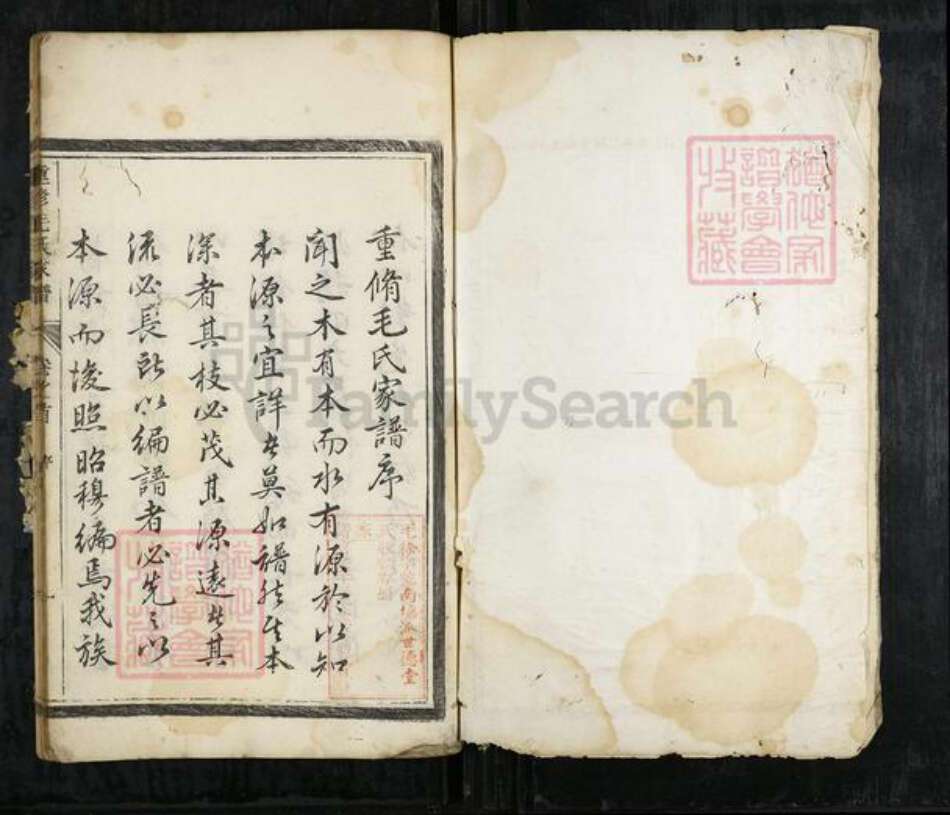 重脩毛氏家譜序
聞之木有本而水有源於以知
本源之宜詳者莫如譜然其本
深者其枝必茂其源遠者其
流必長所以編譜者必先之以
本源而後照昭穆編焉我族
重修毛氏家譜
卷之首
序
南塘派世德堂
譜學會
收藏
FamilySearch